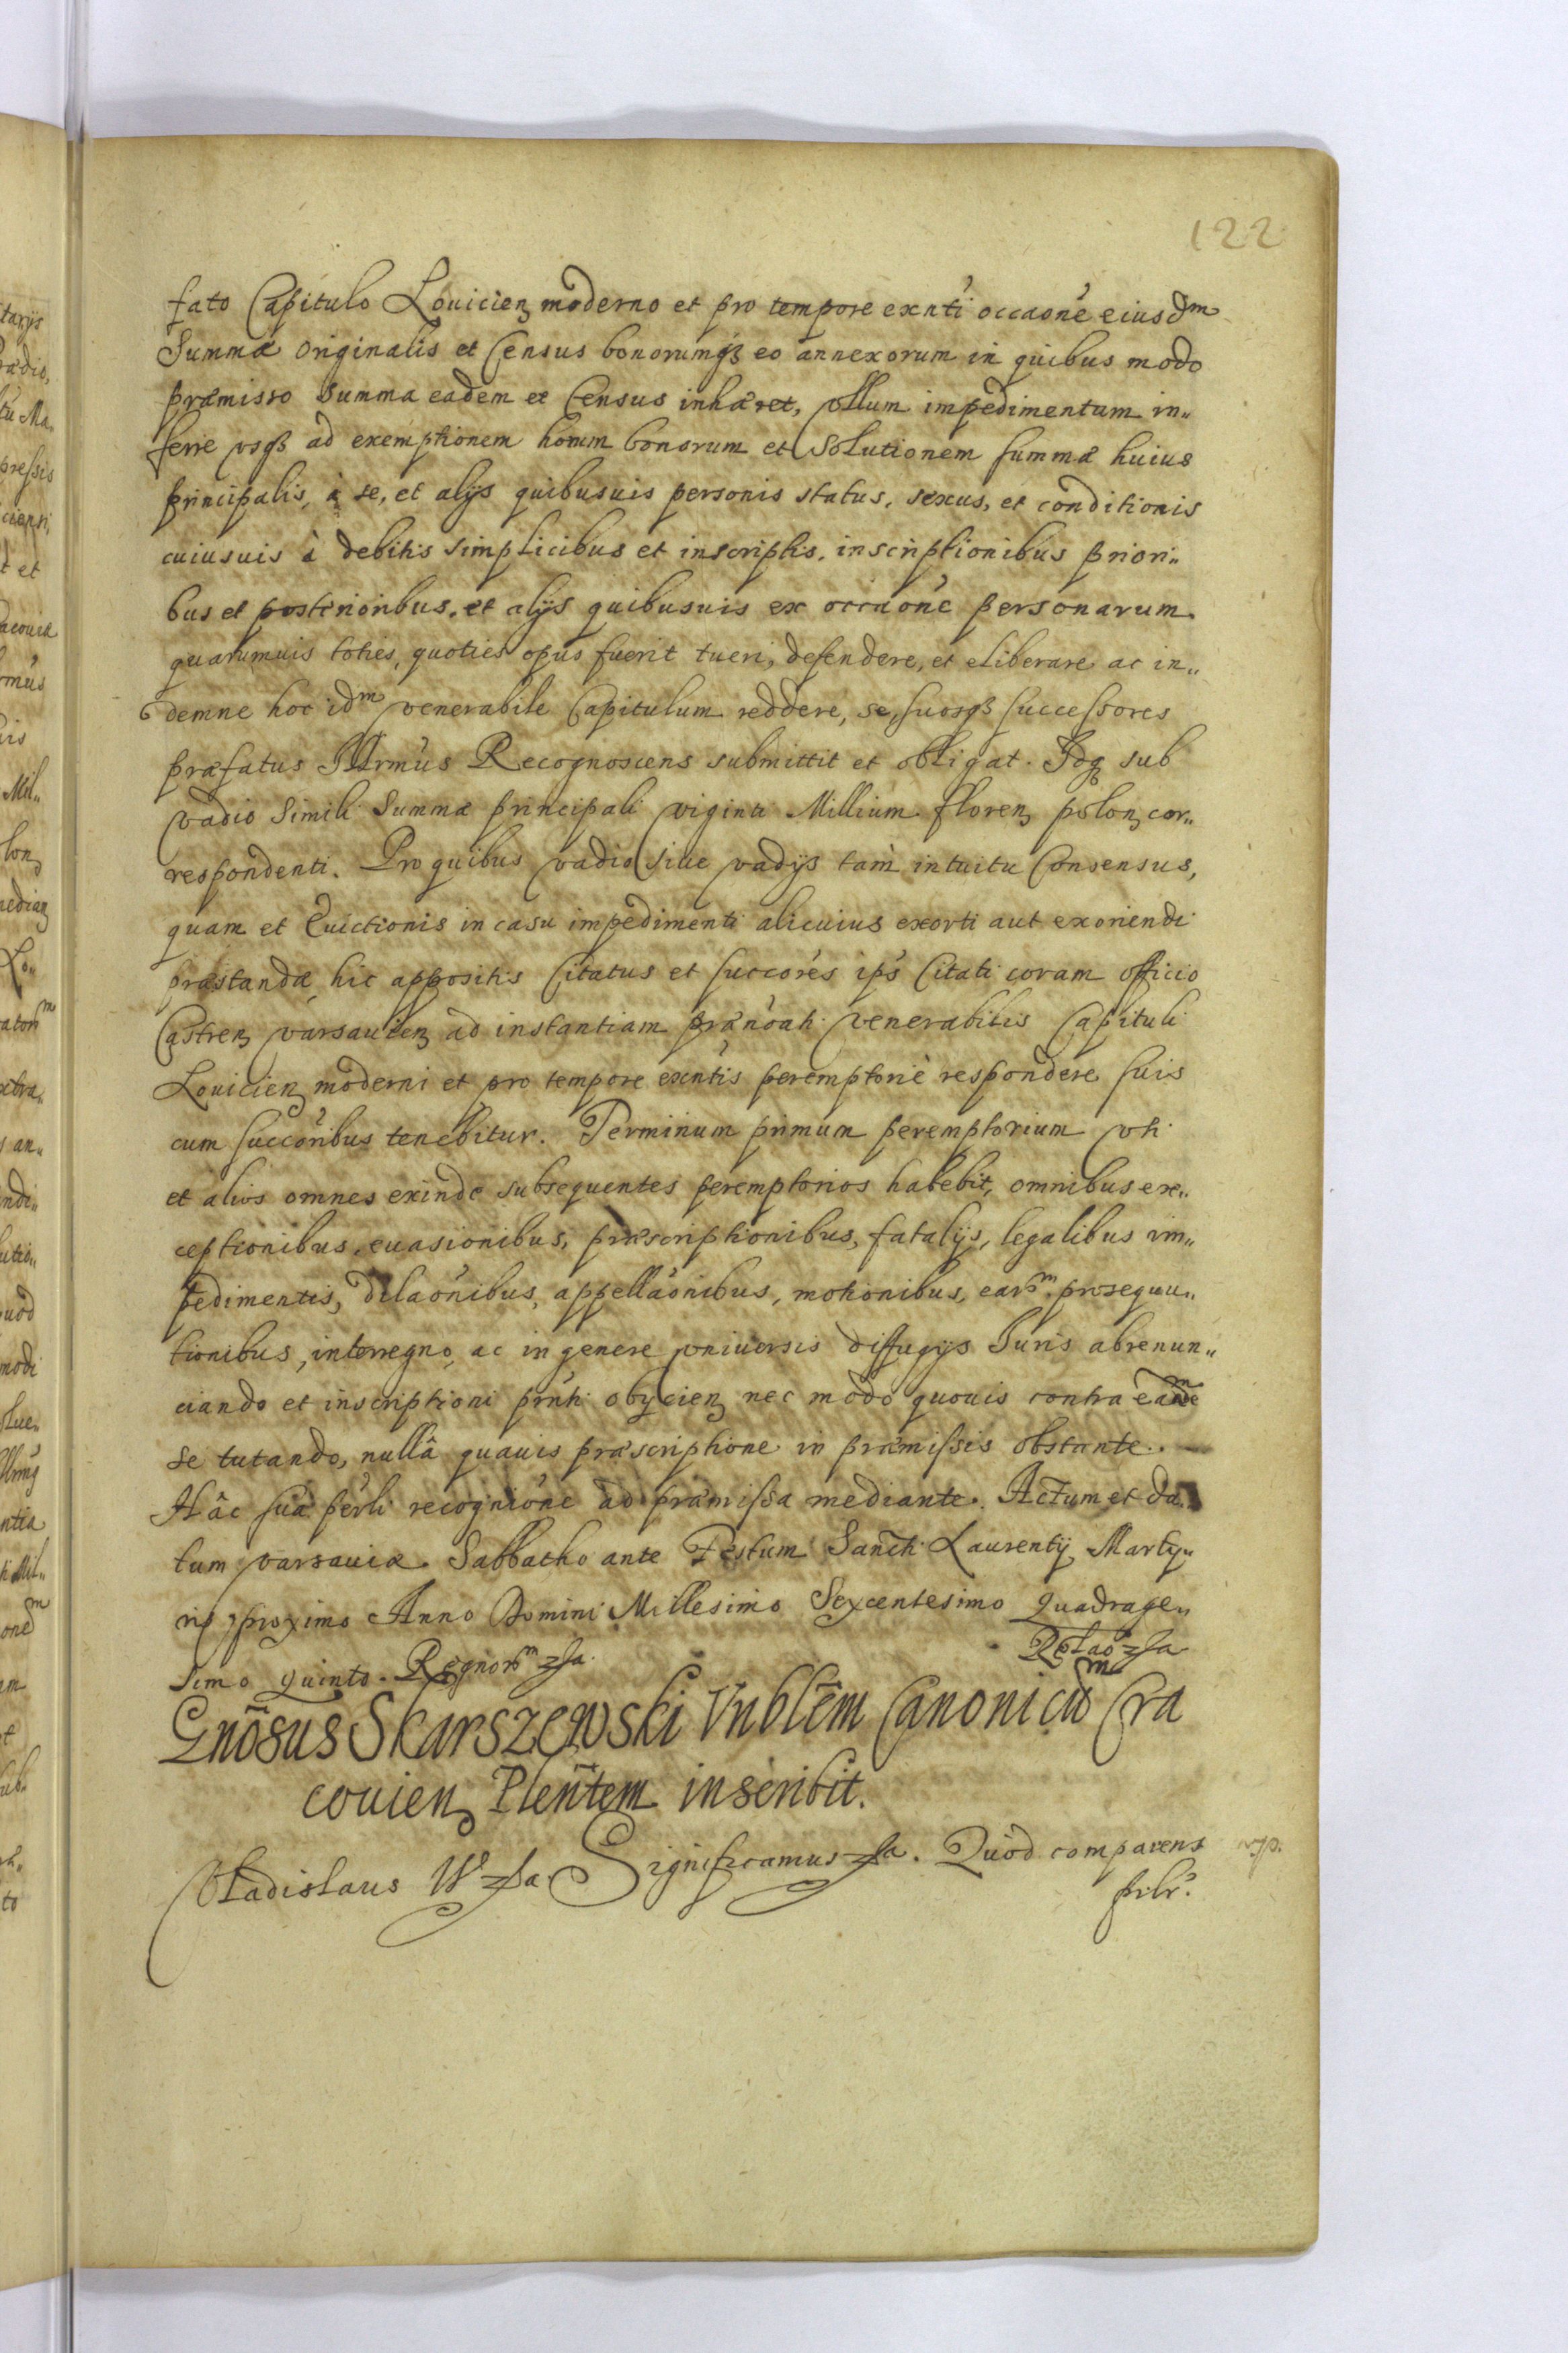 122
fato Capitulo Louicien moderno et pro tempore exnti occaone eiusdm
Summæ originalis et Census bonorumq3 eo annexorum in quibus modo
præmisso Summa eadem et Census inhæret, vllum impedimentum in„
ferre vsq3 ad exemptionem horum bonorum et Solutionem summæ huius
principalis, à se, et alijs quibusuis personis status, sexus, et conditionis
cuiusuis à debitis simplicibus et inscriptis, inscriptionibus priori„
bus et posterioribus, et alijs quibusuis ex occaone personarum
quarumuis toties, quoties opus fuerit tueri, defendere, et eliberare ac in„
demne hoc idm venerabile Capitulum reddere, se, suosq3 successores
præfatus Illrmus Recognoscens submittit et obligat. Idq3 sub
vadio simili Summæ principali viginti Millium floren polon cor„
respondenti. Pro quibus vadio siue vadijs tam intuitu Consensus,
quam et Euictionis in casu impedimenti alicuius exorti aut exoriendi
præstandæ hic appositis Citatus et succores ips Citati coram officio
Castren varsauien ad instantiam prænoati venerabilis Capituli
Louicien moderni et pro tempore exntis peremptoriè respondere suis
cum succoribus tenebitur. Terminum primum peremptorium vti
et alios omnes exinde subsequentes peremptorios habebit, omnibus ex„
ceptionibus, euasionibus, præscriptionibus, fatalijs, legalibus im„
pedimentis, dilaonibus, appellaonibus, motionibus, earm prosequu„
tionibus, interregno, ac in genere vniuersis diffugijs Iuris abrenun„
ciando et inscriptioni prnti obijcien nec modo quouis contra eande
se tutando, nullâ quauis præscriptione in præmissis obstante.
Hâc suâ perli recognione ad præmissa mediante. Actum et da„
tum varsauiæ Sabbatho ante Festum Sancti Laurentij Marty„
ris proximo Anno Domini Millesimo Sexcentesimo Quadrage„
simo quinto. Regnorm
Relao
Gnosus Skarszewski Vnblem Canonicum Cra
couien Plentem inscribit.
Vladislaus IV Significamus Quod comparens